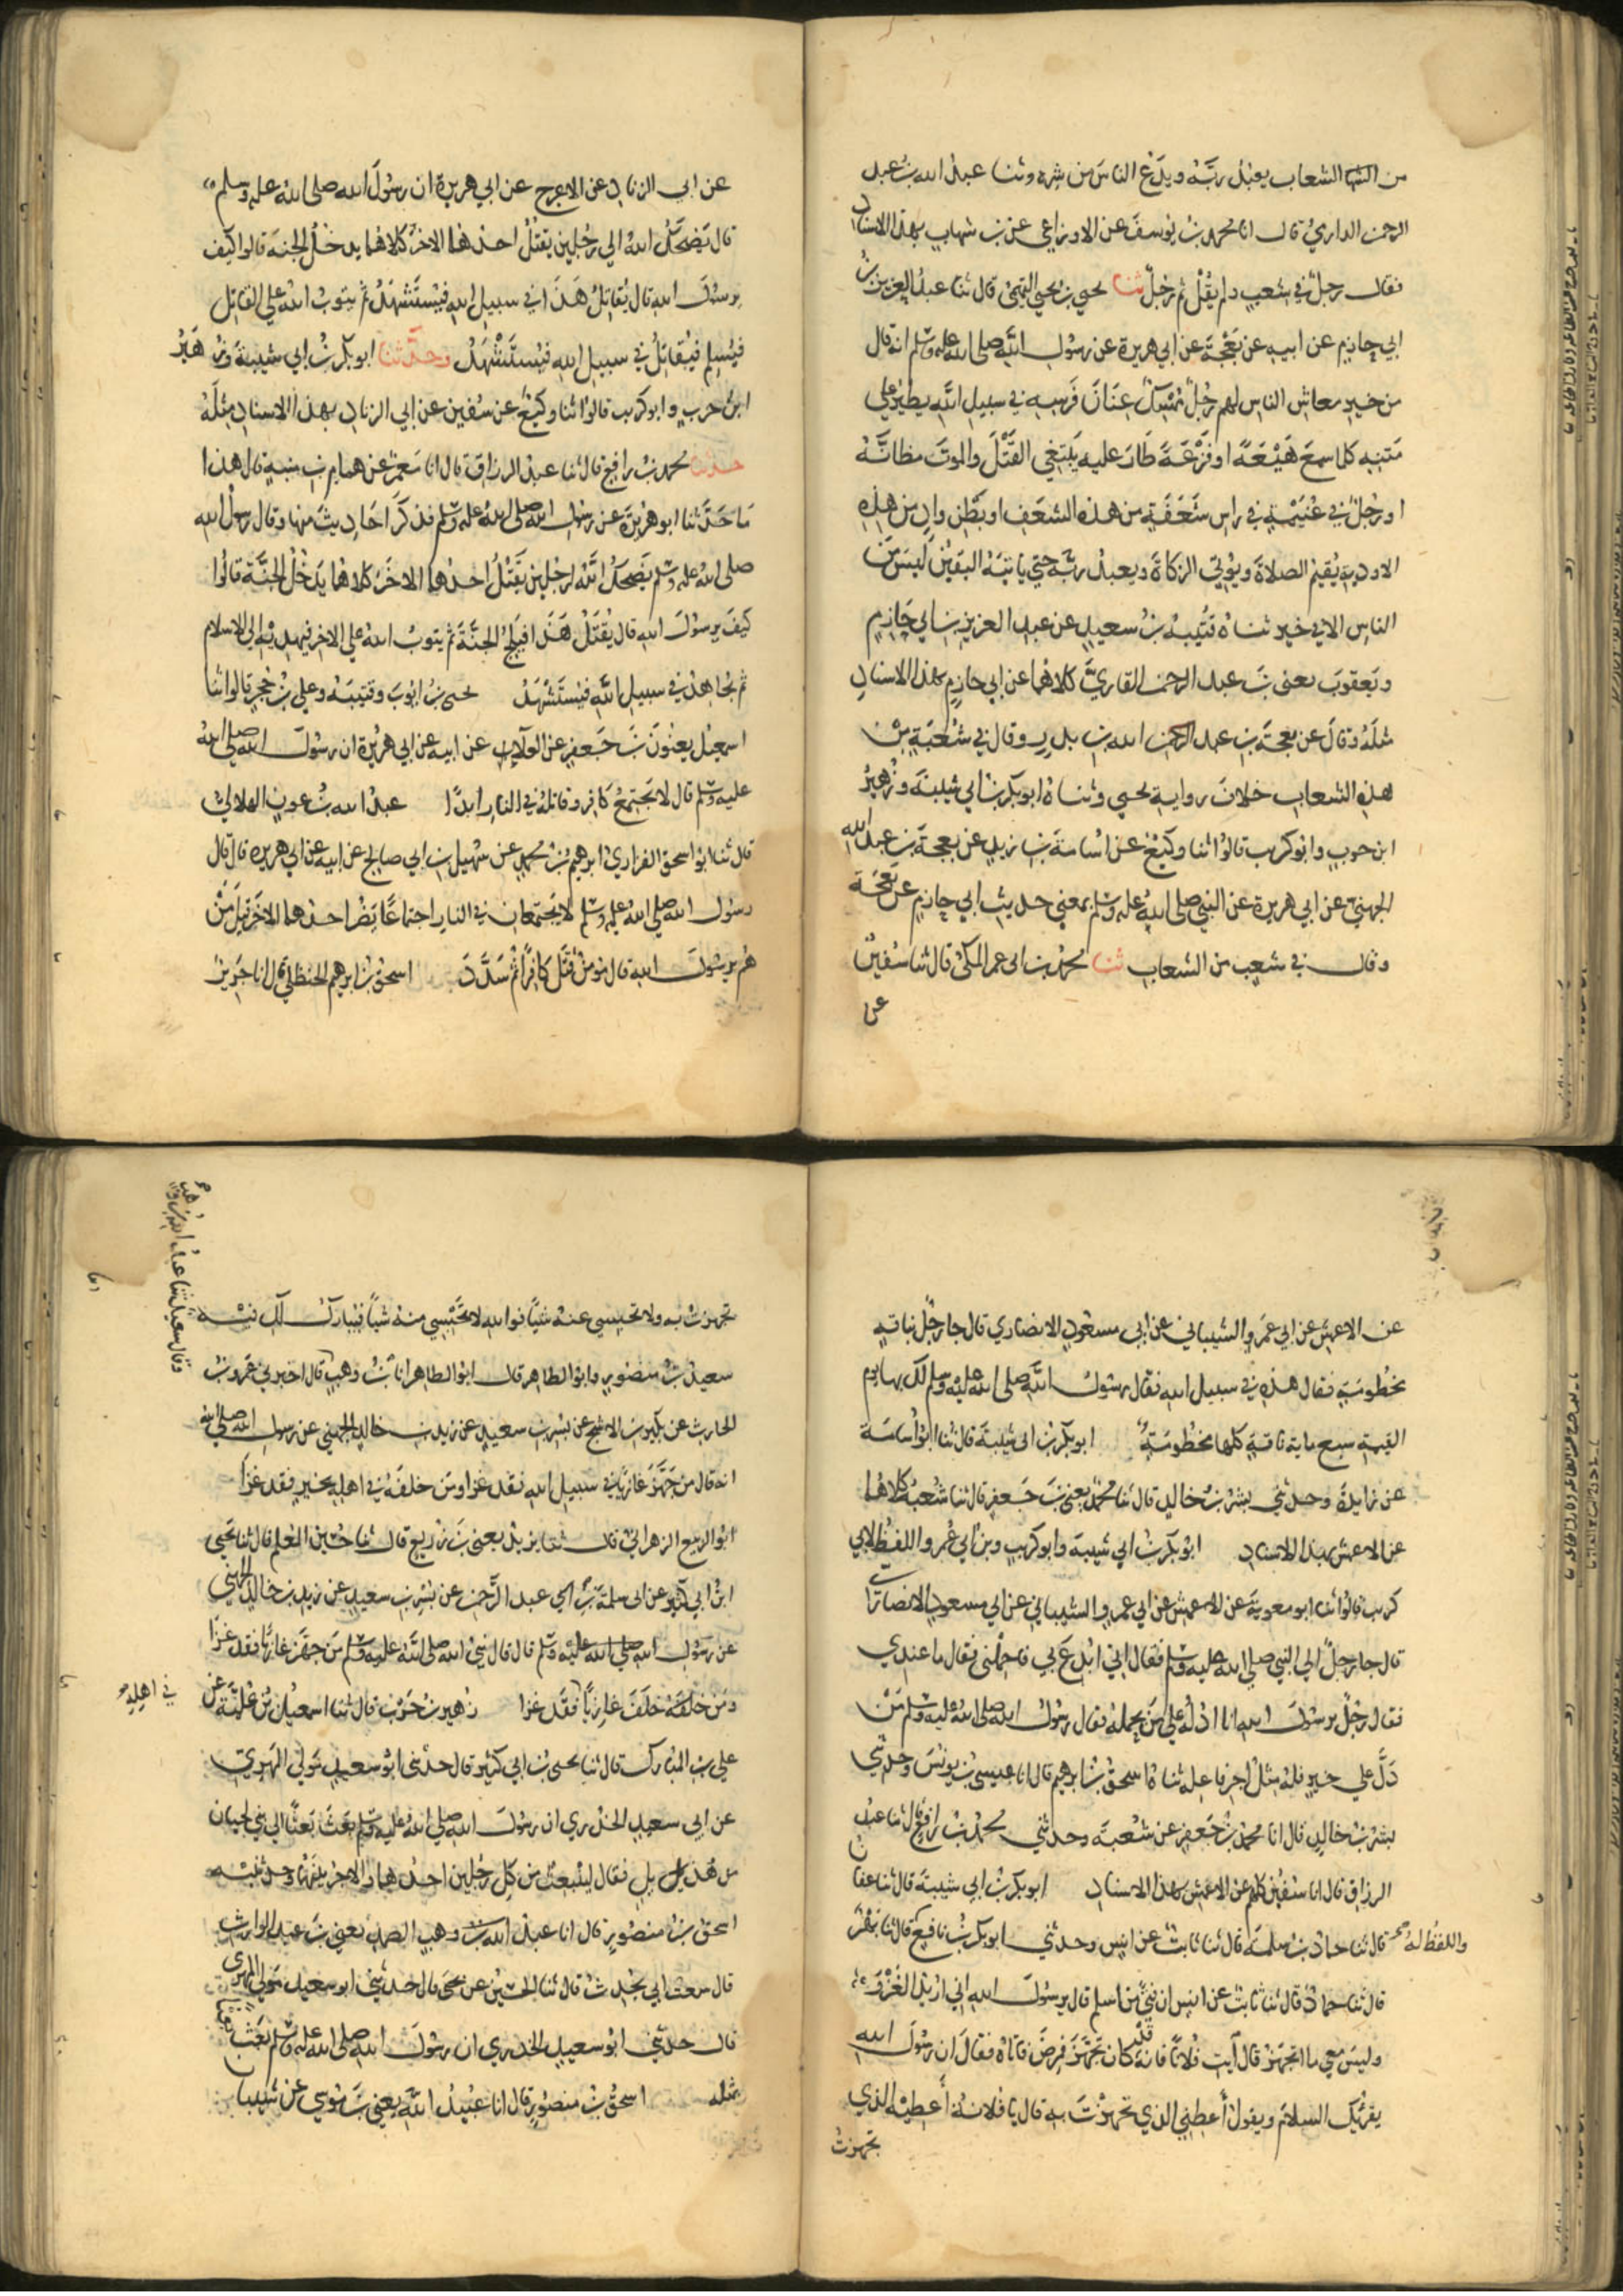 من الشعاب يعبد ربه ويدع الناس من شره وثنا عبد الله بن عبد
الرحمن الدارمي قال انا محمد بن يوسف عن الاوزاعي عن بن شهاب بهذا الاسناد
فقال رجل في شعب ولم يقل ثم رجل ثنا يحيى بن يحيى التميمي قال ثنا عبد العزيز بن
ابي حازم عن ابيه عن بعجة عن ابي هريرة عن رسول الله صلى الله عليه وسلم انه قال
من خير معاش الناس لهم رجل ممسك عنان فرسه في سبيل الله يطير على
متنه كلما سمع هيعة او فزعة طار عليه يبتغي القتل والموت مظانه
او رجل في غنيمة في راس شعفة من هذه الشعف او بطن واد من هذه
الاودية يقيم الصلاة ويؤتي الزكاة ويعبد ربه حتى ياتيه اليقين ليس من
الناس الا في خير ثناه قتيبة بن سعيد عن عبد العزيز بن ابي حازم
ويعقوب يعني بن عبد الرحمن القاري كلاهما عن ابي حازم بهذا الاسناد
مثله وقال عن بعجة بن عبد الله بن بدر وقال في شعبة من
هذه الشعاب خلاف رواية يحيى وثناه ابو بكر بن ابي شيبة وزهير
ابن حرب وابو كريب قالوا ثنا وكيع عن اسامة بن زيد عن بعجة بن عبد الله
الجهني عن ابي هريرة عن النبي صلى الله عليه وسلم بمعنى حديث ابي حازم عن بعجة
وقال في شعب من الشعاب ثنا محمد بن ابي عمر المكي قال ثنا سفين
عن
عن ابي الزناد عن الاعرج عن ابي هريرة ان رسول الله صلى الله عليه وسلم
قال يضحك الله الي رجلين يقتل احدهما الاخر كلاهما يدخل الجنة قالوا كيف
يرسول الله قال يقاتل هذا في سبيل الله فيستشهد ثم يتوب الله على القاتل
فيسلم فيقاتل في سبيل الله فيستشهد وحدثنا ابو بكر بن ابي شيبة وزهير
ابن حرب وابو كريب قالوا ثنا وكيع عن سفين عن ابي الزناد بهذا الاسناد مثله
حدثنا محمد بن رافع قال ثنا عبد الرزاق قال انا معمر عن همام بن منبه قال هذا
ما حدثنا ابو هريرة عن رسول الله صلى الله عليه وسلم فذكر احاديث منها وقال رسول الله
صلى الله عليه وسلم يضحك الله لرجلين يقتل احدهما الاخر كلاهما يدخل الجنة قالوا
كيف يرسول الله قال يقتل هذا فيلج الجنة ثم يتوب الله على الاخر فيهديه الى الاسلام
ثم يجاهد في سبيل الله فيستشهد يحيى بن ايوب وقتيبة وعلي بن حجر قالوا ثنا
اسمعيل يعنون بن جعفر عن العلاء عن ابيه عن ابي هريرة ان رسول الله صلى الله
عليه وسلم قال لا يجتمع كافر وقاتله في النار ابدا عبد الله بن عون الهلالي
قال ثنا ابو اسحق الفزاري ابرهيم بن محمد عن سهيل بن ابي صالح عن ابيه عن ابي هريرة قال قال
رسول الله صلى الله عليه وسلم لا يجتمعان في النار اجتماعا يضر احدهما الاخر قيل من
هم يرسول الله قال مؤمن قتل كافرا ثم سدد اسحق بن ابرهيم الحنظلي قال انا جرير
عن الاعمش عن ابي عمرو الشيباني عن ابي مسعود الانصاري قال جا رجل بناقة
مخطومة فقال هذه في سبيل الله فقال رسول الله صلى الله عليه وسلم لك بها يوم
القيمة سبع ماية ناقة كلها مخطومة ابو بكر بن ابي شيبة قال ثنا ابو اسامة
عن زايدة وحدثني بشر بن خالد قال ثنا محمد يعني بن جعفر قال ثنا شعبة كلاهما
عن الاعمش بهذا الاسناد ابو بكر بن ابي شيبة وابو كريب وبن ابي عمر واللفظ لابي
كريب قالوا ثنا ابو معوية عن الاعمش عن ابي عمرو الشيباني عن ابي مسعود الانصاري
قال جا رجل الى النبي صلى الله عليه وسلم فقال اني ابدع بي فاحملني فقال ما عندي
فقال رجل يرسول الله انا ادله على من يحمله فقال رسول الله صلى الله عليه وسلم من
دل على خير فله مثل اجر فاعله ثناه اسحق بن ابرهيم قال انا عيسى بن يونس وحدثني
بشر بن خالد قال انا محمد بن جعفر عن شعبة وحدثني محمد بن رافع قال ثنا عبد
الرزاق قال انا سفين كلهم عن الاعمش بهذا الاسناد ابو بكر بن ابي شيبة قال ثنا عفان
قال ثنا حماد بن سلمة قال ثنا ثابت عن انس وحدثني ابو بكر بن نافع قال ثنا بهز
واللفظ له
قال ثنا حماد قال ثنا ثابت عن انس ان فتى من اسلم قال يرسول الله اني اريد الغزو
وليس معي ما اتجهز قال آيت فلانا فانه قد كان تجهز فمرض فاتاه فقال ان رسول الله
يقرئك السلام ويقول أعطني الذي تجهزت به قال يا فلانة أعطيه الذي
تجهزت
تجهزت به ولا تحبسي عنه شيا فوالله لا تحبسي منه شيا فيبارك لك فيه
وقال سعيد ثنا عبد الله بن وهب
سعيد بن منصور وابو الطاهر قال ابو الطاهر انا بن وهب قال اخبرني عمرو بن
الحارث عن بكير بن الاشج عن بسر بن سعيد عن زيد بن خالد الجهني عن رسول الله صلى الله
انه قال من جهز غازيا في سبيل الله فقد غزا ومن خلفه في اهله بخير فقد غزا
ابو الربيع الزهراني قال ثنا يزيد يعني بن زريع قال ثنا حسين المعلم قال ثنا يحيى
ابن ابي كثير عن ابي سلمة بن عبد الرحمن عن بسر بن سعيد عن زيد بن خالد الجهني
عن رسول الله صلى الله عليه وسلم قال قال نبي الله صلى الله عليه وسلم من جهز غازيا فقد غزا
ومن خلف غازيا فقد غزا زهير بن حرب قال ثنا اسمعيل بن علية عن
في اهله
علي بن المبارك قال ثنا يحيى بن ابي كثير قال حدثني ابو سعيد مولى المهري
عن ابي سعيد الخدري ان رسول الله صلى الله عليه وسلم بعث بعثا الى بني لحيان
من هذيل فقال لينبعث من كل رجلين احدهما والاجر بينهما وحدثنيه
اسحق بن منصور قال انا عبد الصمد يعني بن عبد الوارث
قال سمعت ابي يحدث قال ثنا الحسين عن يحيى قال حدثني ابو سعيد مولى المهري
قال حدثني ابو سعيد الخدري ان رسول الله صلى الله عليه وسلم بعث بعثا
مثله اسحق بن منصور قال انا عبيد الله يعني بن موسى عن شيبان